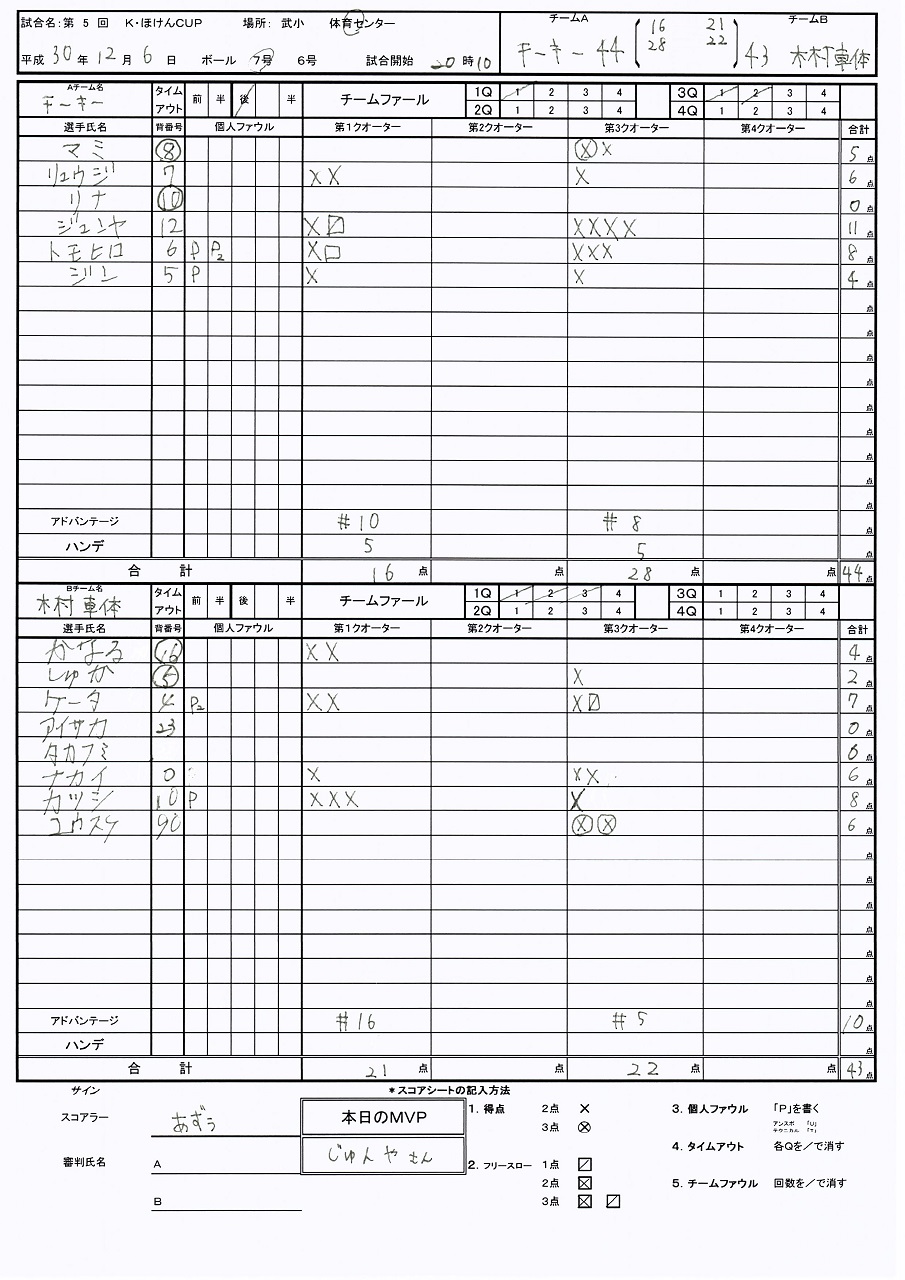 試合名:第 5 回 K・ほけんCUP 場所: 武小 体育センター
平成 30 年 12 月 6 日 ボール 7号 6号 試合開始 20 時 10
チームA チームB
16 21
キーキー 44 28 22 43 木村車体
Aチーム名 キーキー タイムアウト 前 半 後 半 チームファール 1Q 1 2 3 4 3Q 1 2 3 4
2Q 1 2 3 4 4Q 1 2 3 4
選手氏名 背番号 個人ファウル 第1クオーター 第2クオーター 第3クオーター 第4クオーター 合計
マミ 8 Ⓧ X 5 点
リュウジ 7 X X X 6 点
リナ 10 0 点
ジュンヤ 12 X ☐ X X X X 11 点
トモヒロ 6 P P2 X ☐ X X X 8 点
ジン 5 P X X 4 点
点
点
点
点
点
点
点
点
点
アドバンテージ #10 #8 点
ハンデ 5 5 点
合 計 16 点 点 28 点 点 44 点
Bチーム名 木村 車体 タイムアウト 前 半 後 半 チームファール 1Q 1 2 3 4 3Q 1 2 3 4
2Q 1 2 3 4 4Q 1 2 3 4
選手氏名 背番号 個人ファウル 第1クオーター 第2クオーター 第3クオーター 第4クオーター 合計
かなる 16 X X 4 点
しゅか 5 X 2 点
ケータ 4 P2 X X X ☐ 7 点
アイサカ 23 0 点
タカフミ 0 点
ナカイ 0 X X X 6 点
カツシ 10 P X X X X 8 点
ユウスケ 90 Ⓧ Ⓧ 6 点
点
点
点
点
点
点
点
アドバンテージ #16 #5 10 点
ハンデ 点
合 計 21 点 点 22 点 点 43 点
サイン *スコアシートの記入方法
スコアラー あずぅ 本日のMVP 1. 得点 2点 × 3. 個人ファウル 「P」を書く
3点 ⊗ アンスポ 「U」
テクニカル 「T」
じゅんやさん 4. タイムアウト 各Qを/で消す
審判氏名 A 2. フリースロー 1点 ☐
2点 ☒ 5. チームファウル 回数を/で消す
B 3点 ☒ ☐